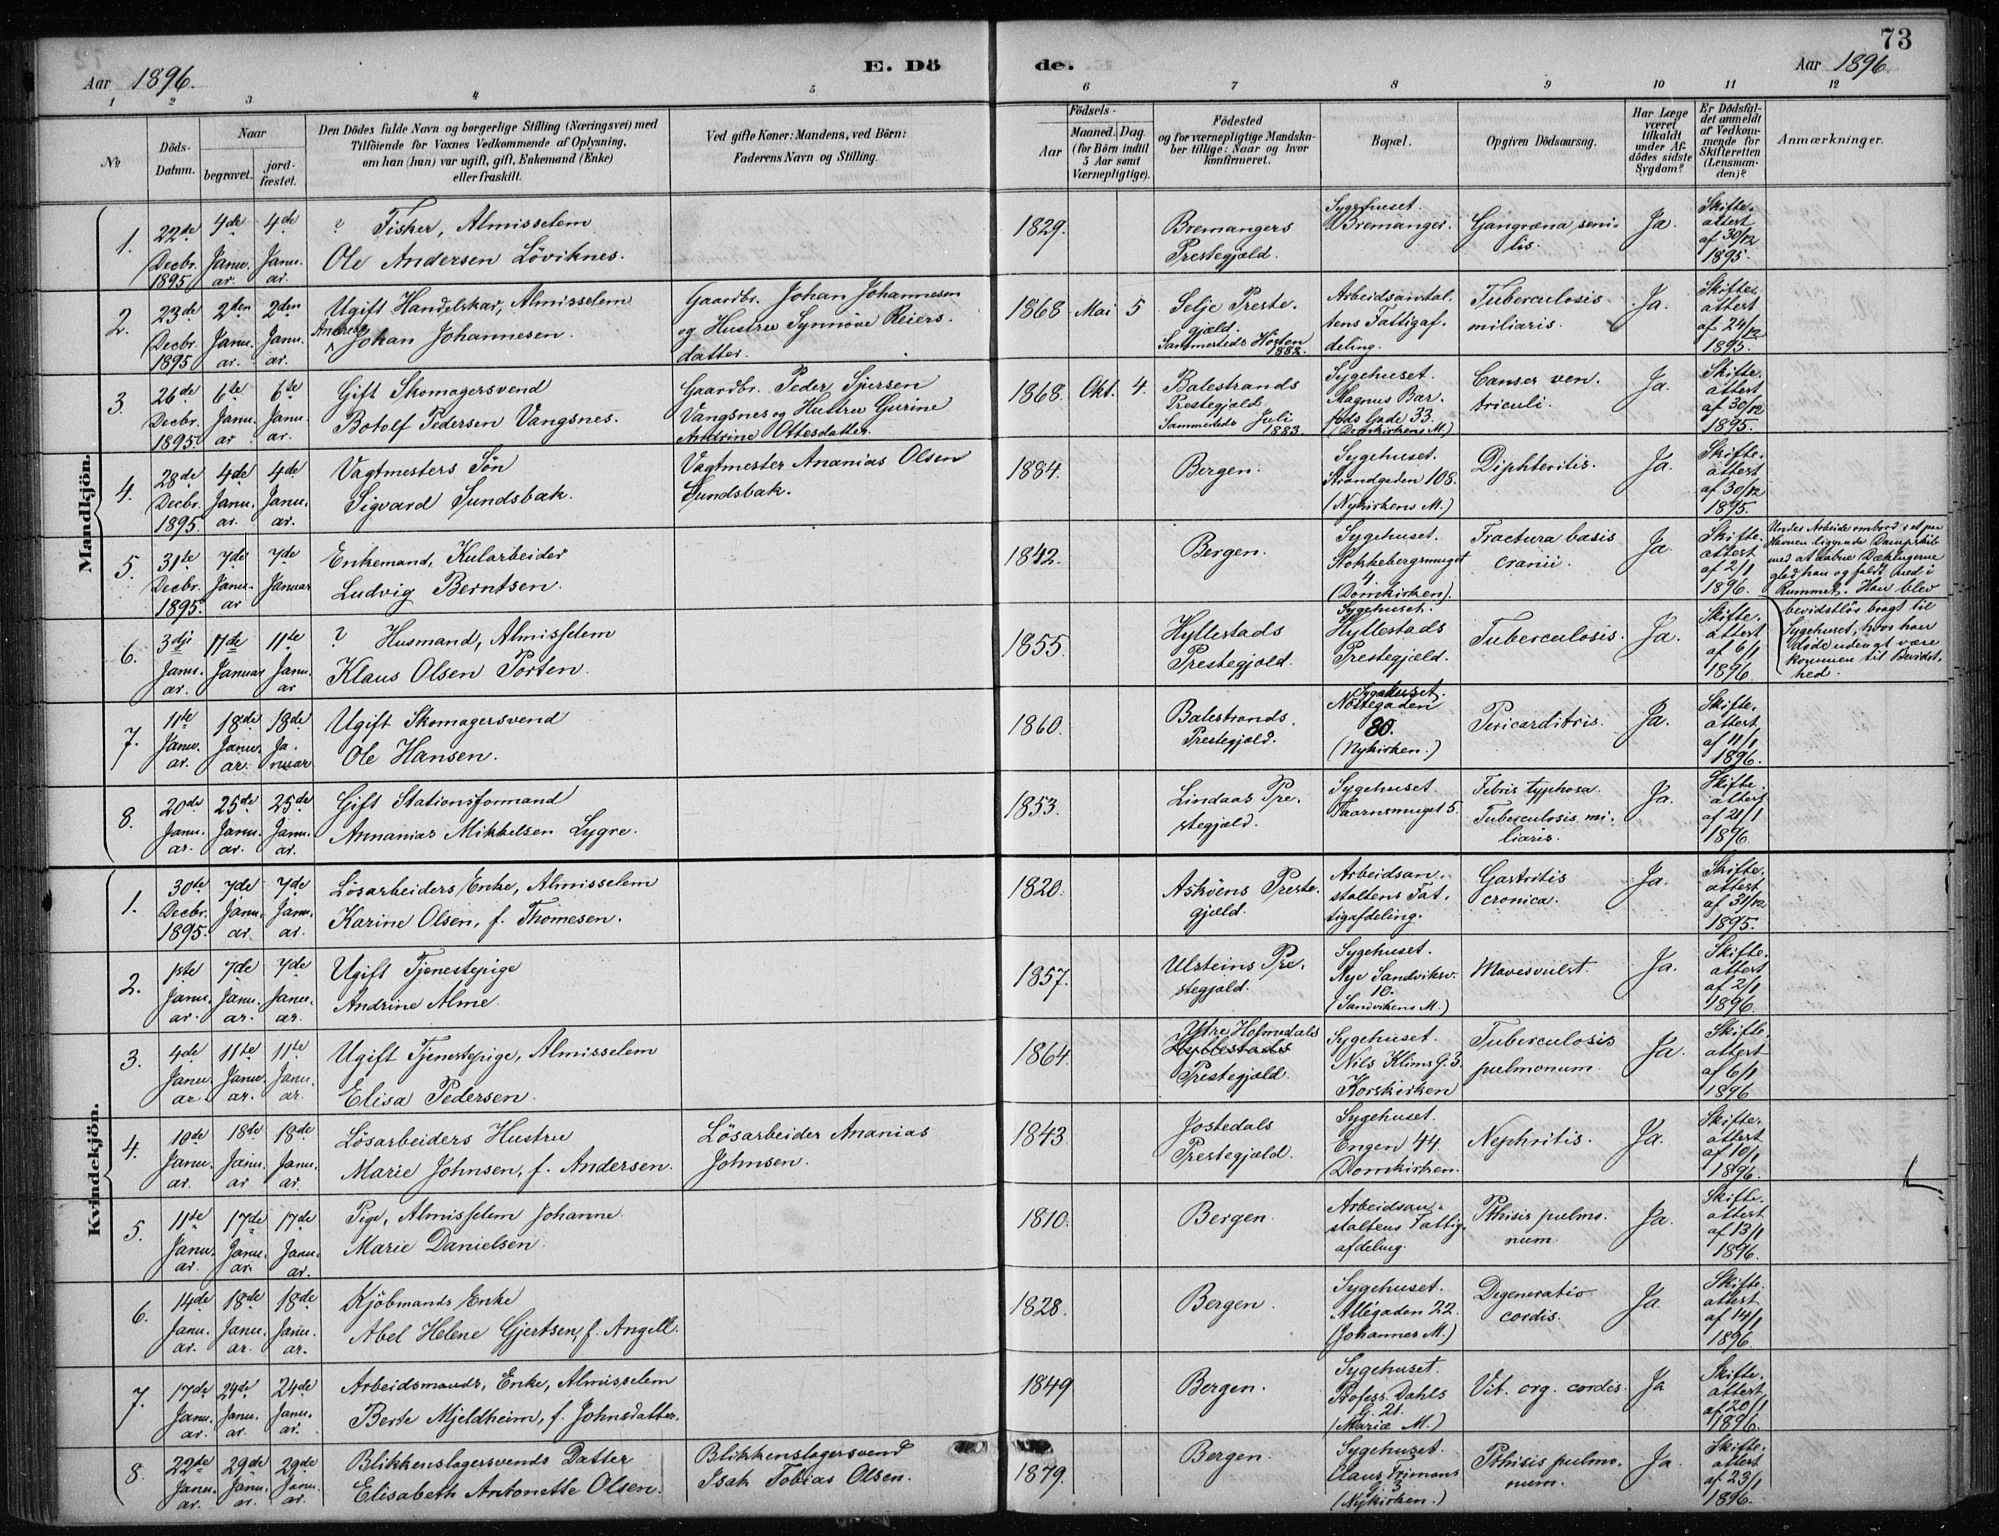 73
Aar 1896.
E. Dö
de.
Aar 1896.
1 2 3 4 5 6 7 8 9 10 11 12
№
Döds-Datum.
Naar
begravet.
jord-fæstet.
Den Dödes fulde Navn og borgerlige Stilling (Næringsvei) med
Tilföiende for Voxnes Vedkommende af Oplysning,
om han (hun) var ugift, gift, Enkemand (Enke)
eller fraskilt.
Ved gifte Koner: Mandens, ved Börn:
Faderens Navn og Stilling.
Födsels-
Aar
Maaned. Dag.
(for Börn indtil
5 Aar samt
Værnepligtige).
Födested
og for værnepligtige Mandska-
ber tillige: Naar og hvor
konfirmeret.
Bopæl.
Opgiven Dödsaarsag.
Har Læge
været
tilkaldt
under Af-
dödes sidste
Sygdom?
Er Dödsfal-
det anmeldt
af Vedkom-
mende for
Skifteretten
(Lensman-
den)?
Anmærkninger.
Mandkjön.
1. 22de Decbr. 1895 4de Janu. ar. 4de Janu. ar.
? Fisker, Almisselem
Ole Andersen Löviknes.
1829.
Bremangers
Prestegjæld.
Sygehuset.
Bremanger.
Gangræna seni-
lis.
Ja.
Skifte.
attert
af 30/12
1895.
2. 23de Decbr. 1895 2den Janu. ar. 2den Janu. ar.
Ugift Handelskar, Almisselem
Johan Johannesen.
Gaardbr. Johan Johannesen
og Hustru Synnöve Reiers-
datter.
1868 Mai 5
Selje Preste-
gjæld.
Sammesteds Hösten
1882.
Arbeidsanstal-
tens Fattigaf-
deling.
Tuberculosis
miliaris.
Ja.
Skifte.
attert
af 24/12
1895.
3. 26de Decbr. 1895 6te Janu. ar 6te Janu. ar.
Gift Skomagersvend
Botolf Pedersen Vangsnes.
Gaardbr. Peder Sjursen
Vangsnes og Hustru Gurine
Andrine Ottesdatter.
1868. Okt. 4.
Balestrands
Prestegjæld.
Sammesteds Juli
1883.
Sygehuset.
Magnus Bar-
fods Gade 33.
(Domkirkens M.)
Canser ven-
triculi.
Ja.
Skifte.
attert
af 30/12
1895.
4. 28de Decbr. 1895. 4de Janu. ar. 4de Janu. ar.
Vagtmesters Sön
Sigvard Sundsbak.
Vagtmester Ananias Olsen
Sundsbak.
1884.
Bergen.
Sygehuset.
Strandgaden 108.
(Nykirkens M.)
Diphteritis.
Ja
Skifte.
attert
af 30/12
1895.
5. 31te Decbr. 1895. 7de Janu. ar 7de Januar
Enkemand, Kularbeider
Ludvig Berntsen.
1842.
Bergen.
Sygehuset.
Stokkebergsmuget
4.
(Domkirken).
Fractura basis
cranii.
Ja
Skifte.
attert
af 2/1
1896.
Under Arbeide ombord i et paa
Havnen liggende Dampskib
med at aabne Dæklugerne
gled han og faldt ned i
Rummet. Han blev
bevidstlös bragt til
Sygehuset, hvor han
döde uden at være
kommen til Bevidst-
hed.
6. 3dje Janu. ar. 11te Januar 11te Janu. ar
? Husmand, Almisselem
Klaus Olsen Porten.
1855.
Hyllestads
Prestegjæld.
Sygehuset.
Hyllestads
Prestegjæld.
Tuberculosis.
Ja.
Skifte.
attert
af 6/1
1896.
7. 11te Janu. ar. 18de Janu. ar. 18de Ja-nuar.
Ugift Skomagersvend
Ole Hansen.
1860.
Balestrands.
Prestegjæld.
Sygehuset.
Nöstegaden
80.
(Nykirken.)
Pericarditris.
Ja.
Skifte.
attert
af 11/1
1896.
8. 20de Janu. ar. 25de Janu. ar. 25de Janu. ar.
Gift Stationsformand
Annanias Mikkelsen Lygre.
1853.
Lindaas Pre-
stegjæld.
Sygehuset.
Taarnsmuget 5.
Febris typhosa.
Tuberculosis mi-
liaris.
Ja.
Skifte.
attert
af 21/1
1896.
Kvindekjön.
1. 30te Decbr. 1895. 7de Janu. ar. 7de Janu. ar.
Lösarbeiders Enke, Almisselem
Karine Olsen, f. Thomesen.
1820.
Asköens Preste-
gjæld.
Arbeidsan-
staltens Fat-
tigafdeling.
Gastritis
cronica.
Ja.
Skifte.
attert
af 31/12
1895.
2. 1ste Janu. ar. 7de Janu. ar. 7de Janu. ar.
Ugift Tjenestepige
Andrine Alme.
1857.
Ulsteins Pre-
stegjæld.
Sygehuset.
Nye Sandviksv.
10.
(Sandvikens M.)
Ja.
Skifte.
attert
af 2/1
1896.
3. 4de Janu. ar. 11te Janu. ar. 11te Janu. ar.
Ugift Tjenestepige, Almisselem
Elisa Pedersen.
1864.
Ytre Holmedals
Hyllestads
Prestegjæld.
Sygehuset.
Nils Klims G. 3.
Korskirken
Tuberculosis
pulmonum.
Ja.
Skifte.
attert
af 6/1
1896
4. 10de Janu. ar. 18de Janu. ar 18de Janu. ar.
Lösarbeiders Hustru
Marie Johnsen, f. Andersen.
Lösarbeider Ananias
Johnsen.
1843.
Jostedals
Prestegjæld.
Sygehuset.
Engen 44.
Domkirken.
Nephritis.
Ja.
Skifte.
attert
af 10/1
1896.
5. 11te Janu. ar. 17de Janu. ar. 17de Janu. ar.
Pige, Almisselem Johanne
Marie Danielsen.
1810.
Bergen.
Arbeidsan-
staltens Fattig-
afdeling.
Pthisis pulmo-
num.
Ja.
Skifte.
attert
af 13/1
1896.
6. 14de Janu. ar. 18de Janu. ar. 18de Janu. ar.
Kjöbmands Enke
Abel Helene Gjertsen, f. Angell.
1828.
Bergen.
Sygehuset.
Allégaden 22.
(Johannes M.)
Degeneratio
cordis.
Ja.
Skifte.
attert
af 14/1
1896.
7. 17de Janu. ar. 24de Janu. ar. 24de Janu. ar.
Arbeidsmands, Enke, Almisselem
Berte Mjeldheim, f. Johnsdatter.
1849
Bergen.
Sygehuset.
Profess. Dahls
G. 21.
(Mariæ M.)
Vit. org. cordis.
Ja
Skifte.
attert
af 20/1
1896.
8. 22de Janu. ar. 29de Janu. ar. 29de Janu. ar.
Blikkenslagersvends Datter
Elisabeth Antonette Olsen.
Blikkenslagersvend
Isak Tobias Olsen.
1879.
Bergen.
Sygehuset.
Claus Frimans
G. 3
(Nykirken.)
Pthisis pulmo-
num.
Ja.
Skifte.
attert
af 23/1
1896.